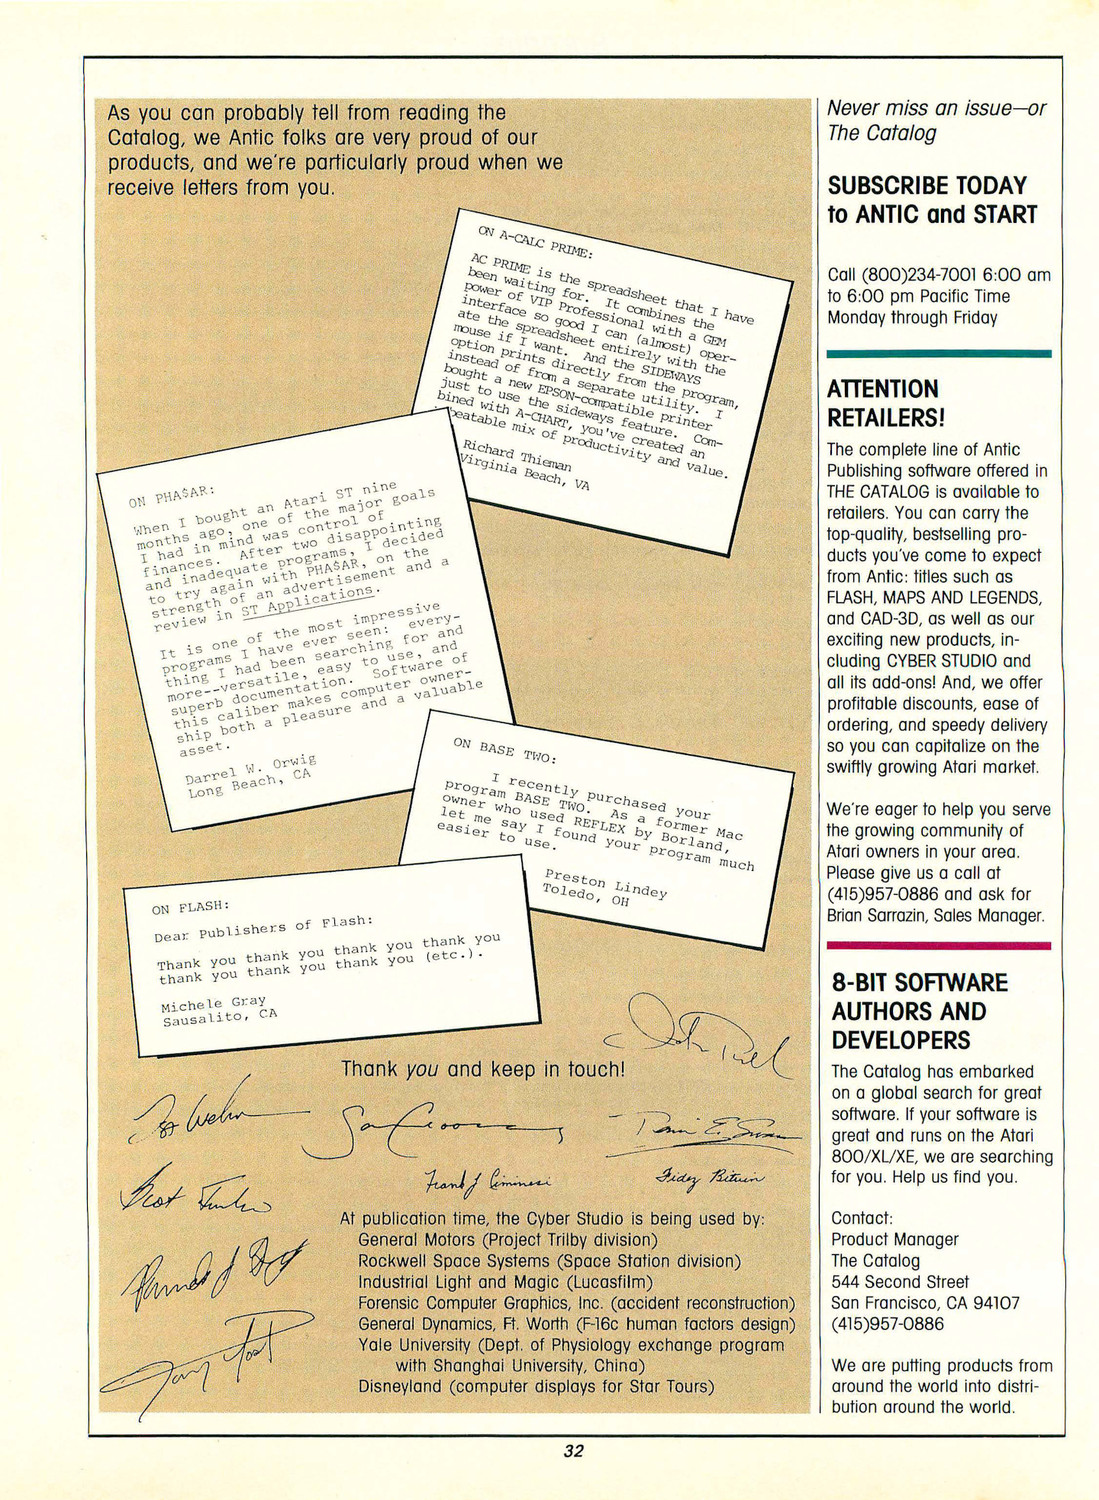 As you can probably tell from reading the
Catalog, we Antic folks are very proud of our
products, and we're particularly proud when we
receive letters from you.
ON A-CALC PRIME:
AC PRIME is the spreadsheet that I have
been waiting for. It combines the
power of VIP Professional with a GEM
interface so good I can (almost) oper-
ate the spreadsheet entirely with the
mouse if I want. And the SIDEWAYS
option prints directly from the program,
instead of from a separate utility. I
bought a new EPSON-compatible printer
just to use the sideways feature. Com-
bined with A-CHART, you've created an
beatable mix of productivity and value.
Richard Thieman
Virginia Beach, VA
ON PHA$AR:
When I bought an Atari ST nine
months ago, one of the major goals
I had in mind was control of
finances. After two disappointing
and inadequate programs, I decided
to try again with PHA$AR, on the
strength of an advertisement and a
review in ST Applications.
It is one of the most impressive
programs I have ever seen: every-
thing I had been searching for and
more--versatile, easy to use, and
superb documentation. Software of
this caliber makes computer owner-
ship both a pleasure and a valuable
asset.
Darrel W. Orwig
Long Beach, CA
ON BASE TWO:
I recently purchased your
program BASE TWO. As a former Mac
owner who used REFLEX by Borland,
let me say I found your program much
easier to use.
Preston Lindey
Toledo, OH
ON FLASH:
Dear Publishers of Flash:
Thank you thank you thank you
thank you thank you thank you (etc.).
Michele Gray
Sausalito, CA
Thank you and keep in touch!
Frank J Ciminesi
At publication time, the Cyber Studio is being used by:
General Motors (Project Trilby division)
Rockwell Space Systems (Space Station division)
Industrial Light and Magic (Lucasfilm)
Forensic Computer Graphics, Inc. (accident reconstruction)
General Dynamics, Ft. Worth (F-16c human factors design)
Yale University (Dept. of Physiology exchange program
with Shanghai University, China)
Disneyland (computer displays for Star Tours)
Never miss an issue—or
The Catalog
SUBSCRIBE TODAY
to ANTIC and START
Call (800)234-7001 6:00 am
to 6:00 pm Pacific Time
Monday through Friday
ATTENTION
RETAILERS!
The complete line of Antic
Publishing software offered in
THE CATALOG is available to
retailers. You can carry the
top-quality, bestselling pro-
ducts you've come to expect
from Antic: titles such as
FLASH, MAPS AND LEGENDS,
and CAD-3D, as well as our
exciting new products, in-
cluding CYBER STUDIO and
all its add-ons! And, we offer
profitable discounts, ease of
ordering, and speedy delivery
so you can capitalize on the
swiftly growing Atari market.
We're eager to help you serve
the growing community of
Atari owners in your area.
Please give us a call at
(415)957-0886 and ask for
Brian Sarrazin, Sales Manager.
8-BIT SOFTWARE
AUTHORS AND
DEVELOPERS
The Catalog has embarked
on a global search for great
software. If your software is
great and runs on the Atari
800/XL/XE, we are searching
for you. Help us find you.
Contact:
Product Manager
The Catalog
544 Second Street
San Francisco, CA 94107
(415)957-0886
We are putting products from
around the world into distri-
bution around the world.
32